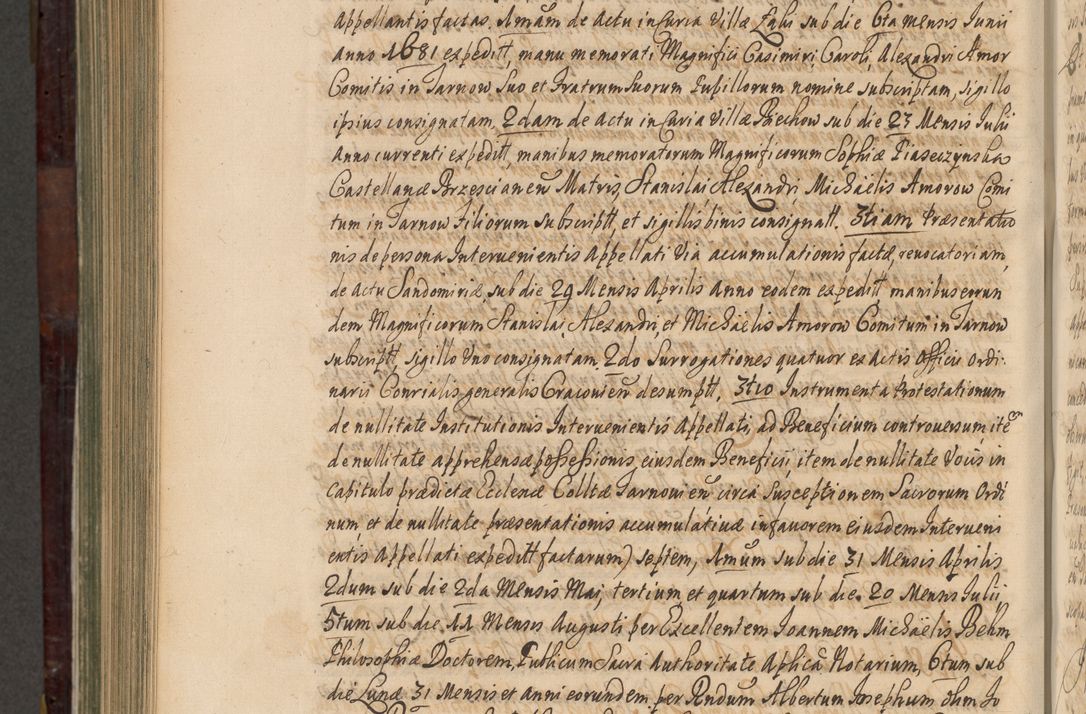 Appellantis factas. Amam de Actu in Curia Villæ Zabi sub die 6ta mensis Iunii
anno 1681 expeditt, manu memorati Magnifici Casimiri, Caroli, Alexandri Amor
Comitis in Tarnow suo et Fratrum suorum Pupillorum nomine subscriptam, sigillo
ipsius consignatam, 2dam de actu in Curia Villæ Piechow sub die 23 Mensis Iulii
Anno currenti expeditt, manibus memoratorum Magnificorum Sophiæ Piaseczynska
Castellanæ Brzescianen Matris, Stanislai Alexandri, Michaëlis Amorow Comi
tum in Tarnow Filiorum subscriptt, et sigillis binis consignatt. 3tiam Præsentatio
nis de persona Interuenientis Appellati via accumulationis factæ, reuocatoriam,
de actu Sandomiriæ sub die 29 Mensis Aprilis Anno eodem expeditt manibus eorun
dem Magnificorum Stanislai, Alexandri, et Michaëlis Amorow Comitum in Tarnow
subscriptt, sigillo Uno consignatam. 2do Surrogationes quatuor ex Actis Officii Ordi:
narii Consialis generalis Cracouien desumptt, 3tio Instrumenta Protestationum
de nullitate Institutionis Interuenientis Appellati, ad Beneficium controuersum item
de nullitate apprehensæ possessionis, eiusdem Beneficii, item de nullitate Vocis in
Capitulo prædictæ Ecclesiæ Colltæ Tarnouien circa susceptionem Sacrorum Ordi
num, et de nullitate præsentationis accumulatiuæ in fauorem eiusdem Interueni
entis Appellati expeditt factarum) septem, Amum sub die 31 Mensis Aprilis
2dum sub die 2da Mensis Maij, tertium et quartum sub die 20 Mensis Iulij,
5tum sub die 11 Mensis Augusti per Excellentem Ioannem Michaëlis Behm
Philosophiæ Doctorem, Publicum Sacra Authoritate Aplica Notarium, 6tum sub
die Lunæ 31 Mensis et anni eorundem per Rndum Albertum Iosephum Ohm Io